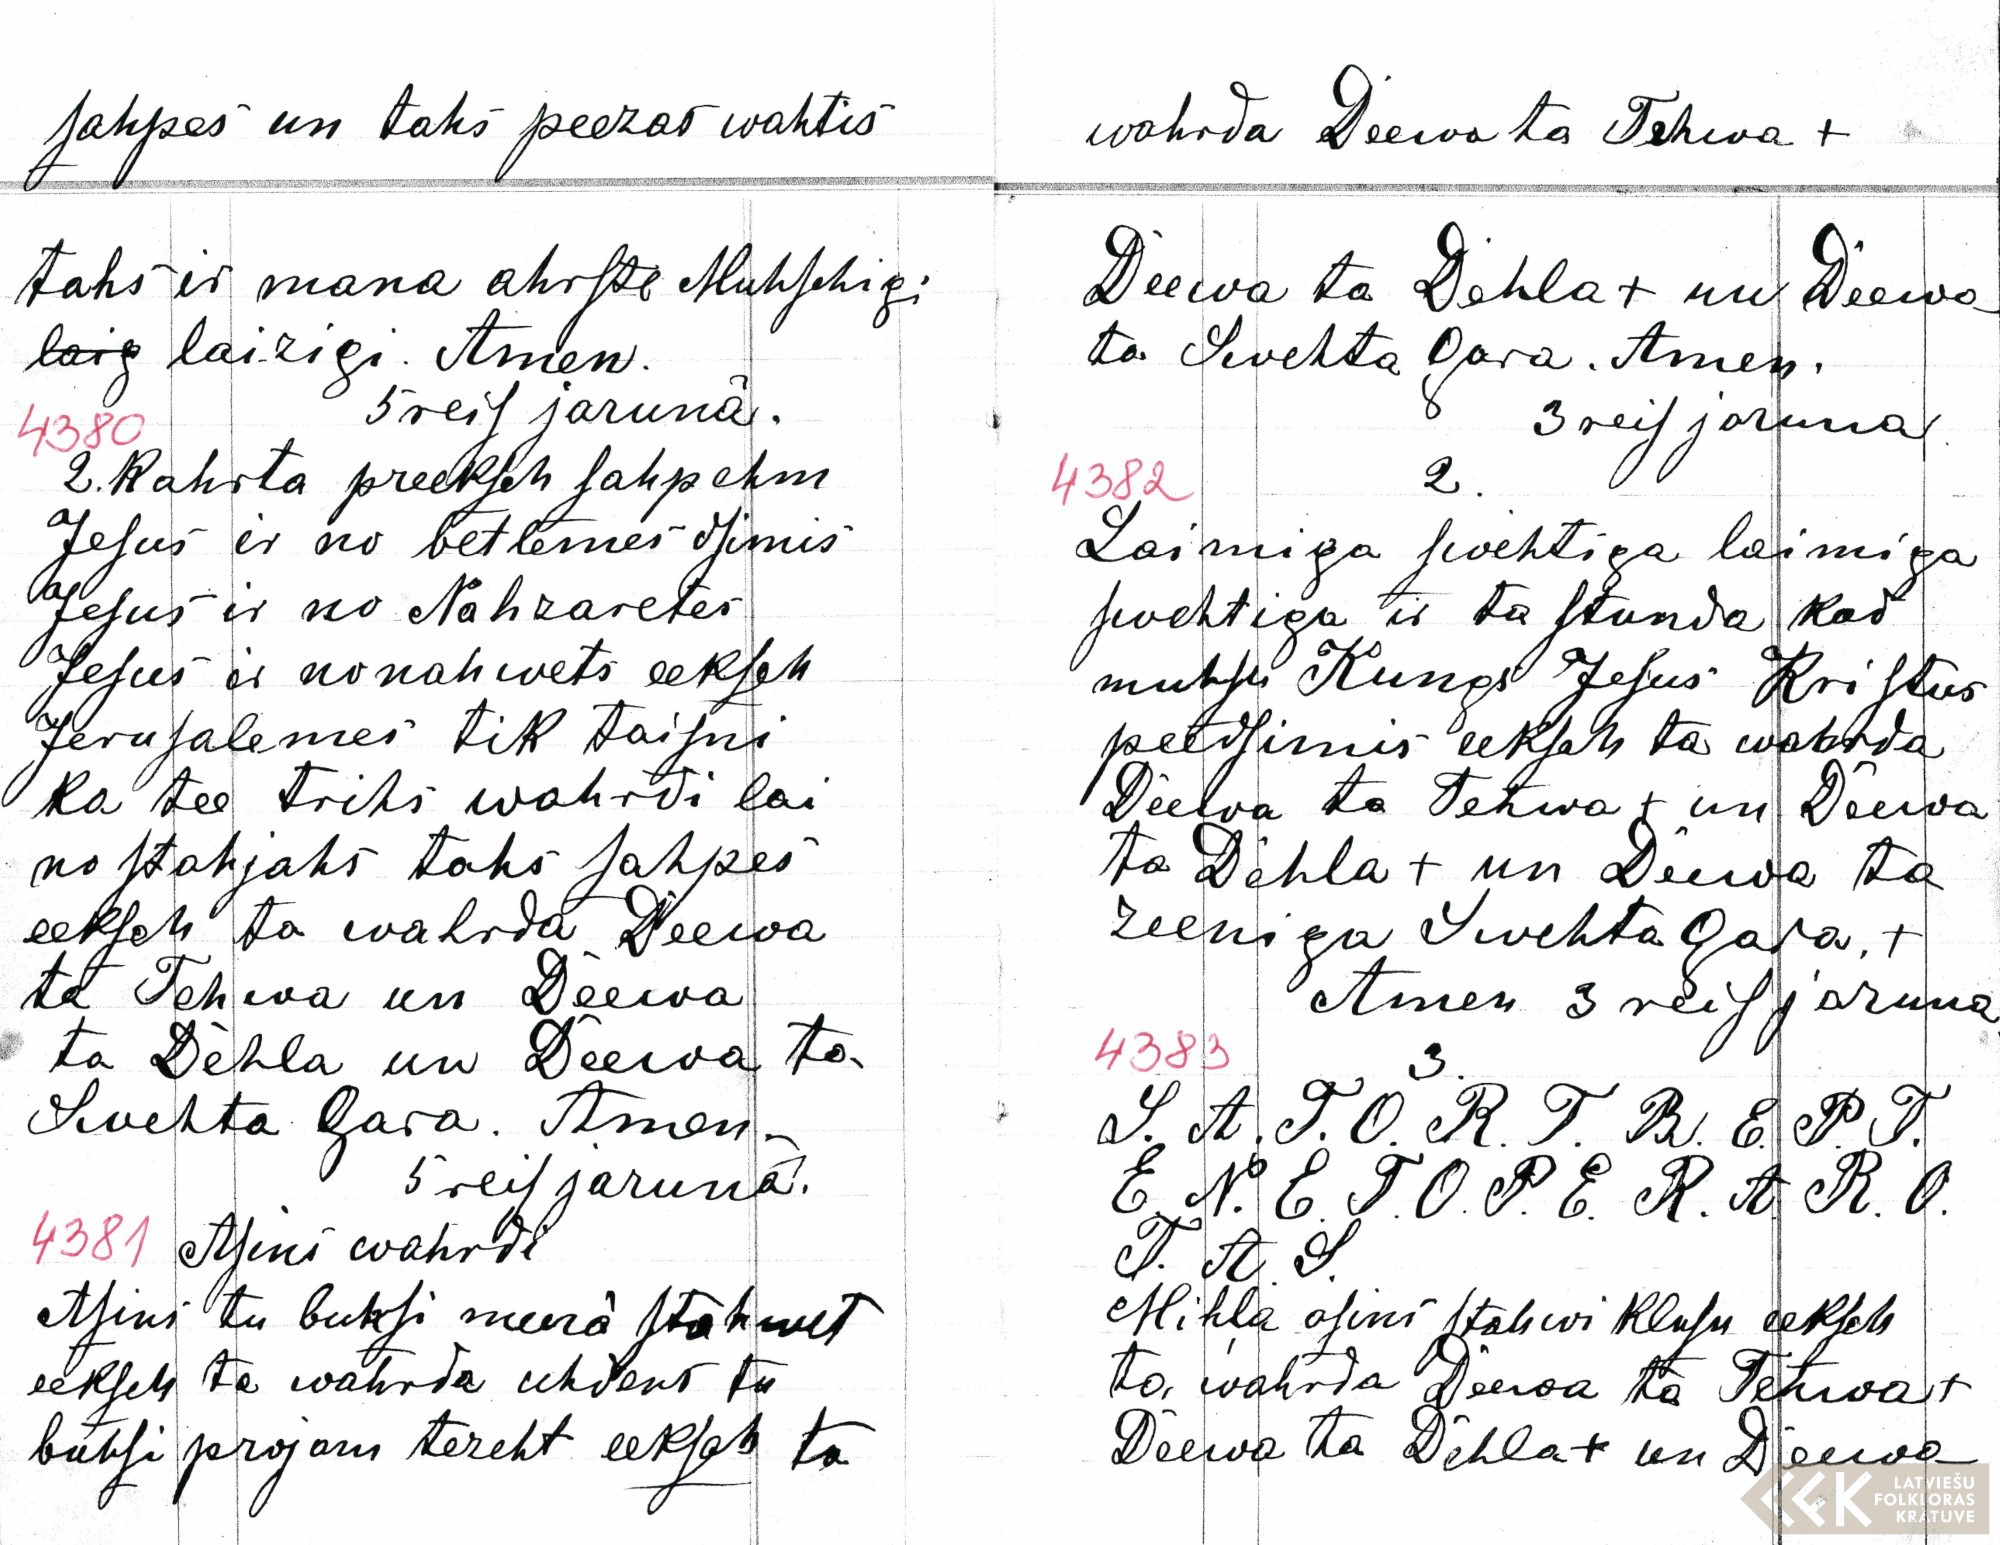 sahpes un tahs peezas wahtis
tahs ir mana ahrste Muhschigi
laig laizigi. Amen.
5 reis jarunā.
4380
2. Kahrta preeksch sahpehm
Jesus ir no betlemes dsimis
Jesus ir no Nahzaretes
Jesus ir nonahwets eeksch
Jerusalemes tik taisni
ka tee trihs wahrdi lai
nostahjahs tahs sahpes
eeksch ta wahrda Deewa
ta Tehwa un Deewa
ta Dehla un Deewa ta
Swehta Gara. Amen.
5 reis jarunā.
4381 Asins wahrdi
Asins tu buhsi meerā stahwet
eeksch ta wahrda uhdens tu
buhsi projam tezeht eeksch ta
wahrda Deewa ta Tehwa +
Deewa ta Dehla + un Deewa
ta Swehta Gara. Amen.
3 reis jaruna
4382 2.
Laimiga swehtiga laimiga
swehtiga ir ta stunda kad
muhsu Kungs Jesus Kristus
peedsimis eeksch ta wahrda
Deewa ta Tehwa + un Deewa
ta Dehla + un Deewa ta
zeeniga Swehta Gara. +
Amen 3 reis jaruna
4383 3.
S. A. T. O. R. T. R. E. P. T.
E. N. E. T. O. P. E. R. A. R. O.
T. A. S.
Mihla asins stahwi klusu eeksch
ta wahrda Deewa ta Tehwa +
Deewa ta Dehla + un Deewa
LATVIEŠU
FOLKLORAS
KRĀTUVE